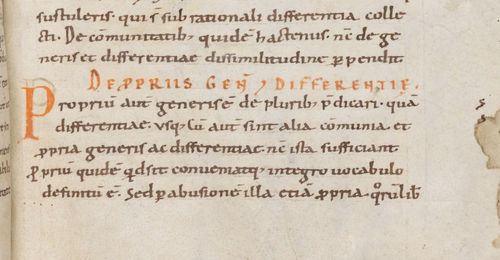 sustuleris. qui s̄ sub rationali differentia colle
cti. De cōmunitatib; quidē hactenus. nc̄ de ge
neris et differentiae dissimilitudine ꝑpendit.
DE PPRIIS GEN̄ ⁊ DIFFERENTIĘ.
Propriū aut̄ generis ē de plurib; p̄dicari. quā
differentiae. usq; Cū aut̄ sint alia cōmunia et
ꝓpria generis ac differentiae. nc̄ ista sufficiant
ꝓpriū quidē qd sit conuenitq; integro uocabulo
definitū ē. Sed ꝑ abusionē illa etiā ꝓpria.